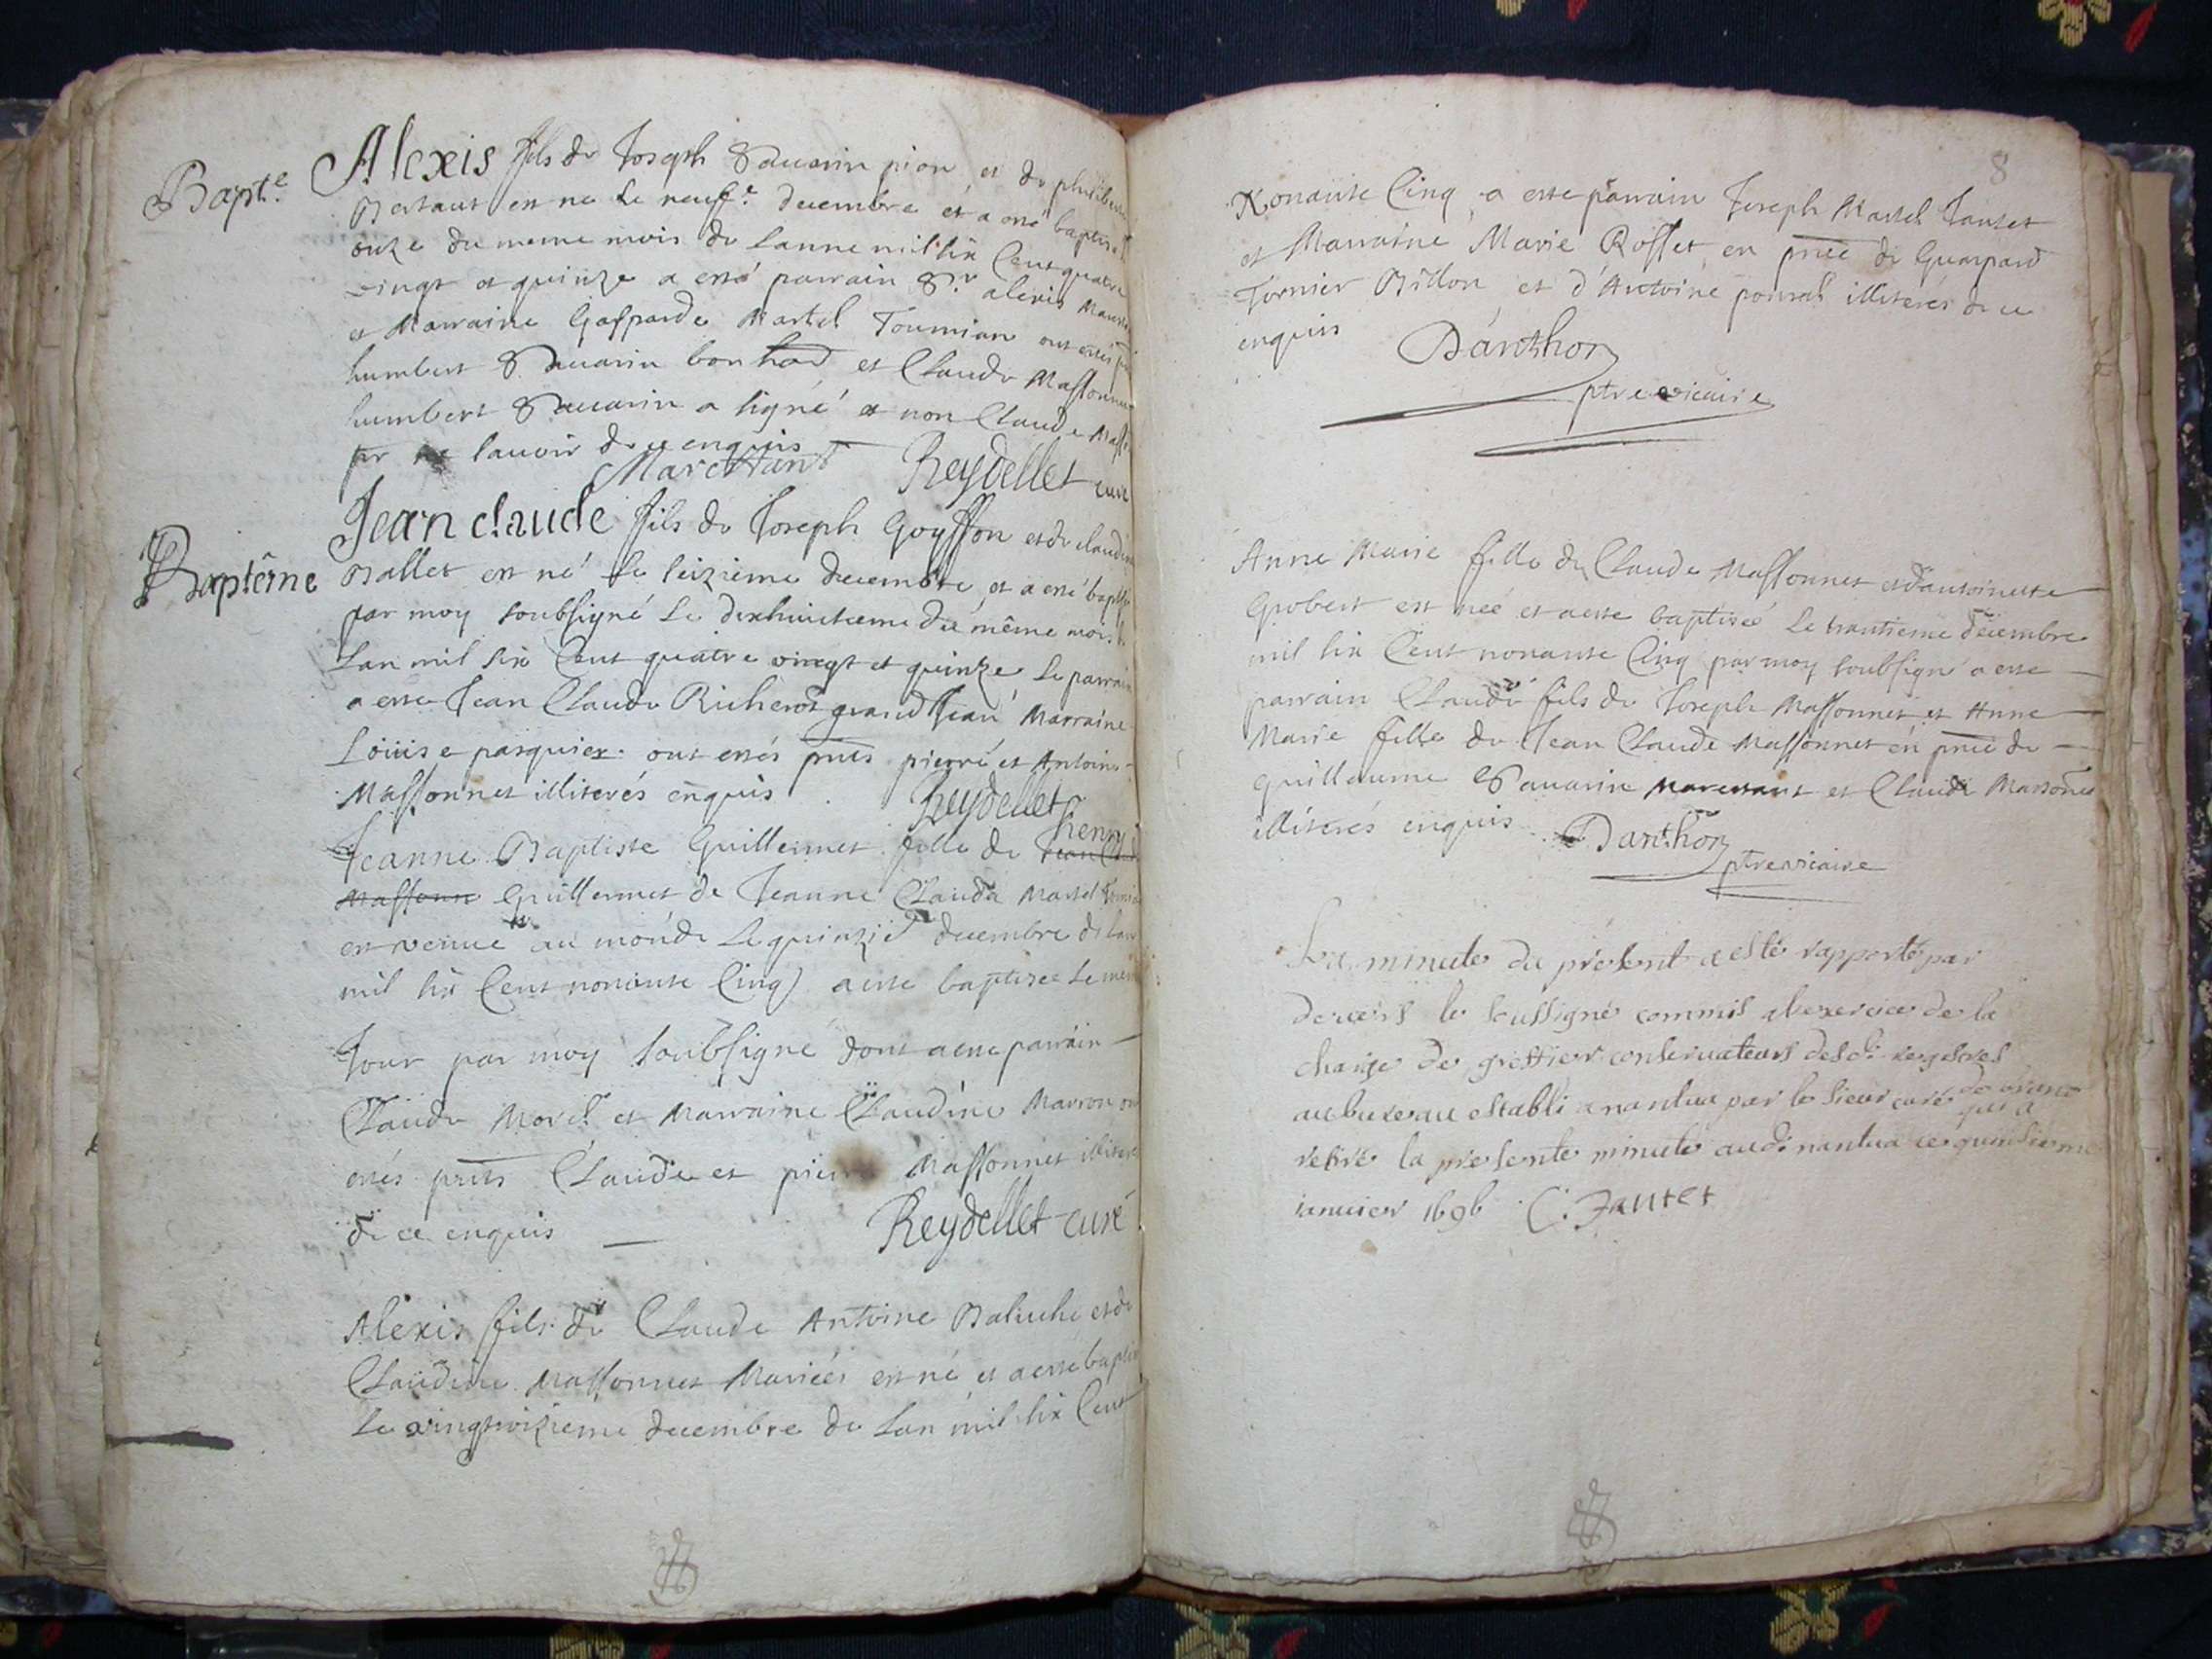 Bapt.e
Alexis fils de Joseph Sauarin pion et de philiberte
Bertaut est ne le neuf.e decembre et a esté baptisé
onze du meme mois de lanne mil six Cent quatre
vingt et quinze a esté parrain S.r alexis
et Marraine Gasparde Martel Tournian ont estés
humbert Sauarin bonhard et Claude Massonnet
humbert Sauarin a signé et non Claude
pr ne scauoir de ce enquis
Marchant Reydellet curé
Baptême
Jean claude fils de Joseph Goyffon et de claudine
Ballet est né le seizieme decembre et a esté baptisé
par moy soubsigné le dixhuictieme du même mois
Lan mil six Cent quatre vingt et quinze le parrain
a este Jean Claude Richerot grand Jean Marraine
Loüise pasquier ont estés pnts pierre et Antoine
Massonnet illiterés enquis Reydellet
henry
Jeanne Baptiste Guillermet fille de Jean
Massonn Guillermet de Jeanne Clauda Martel
est venue au monde le quinzie decembre de lan
mil six Cent nonante Cinq a este baptisee le meme
Jour par moy soubsigné dont a este parrain
Claude Morel et Marraine Claudine Marron
estés pnts Claude et pierre Massonnet illiterés
de ce enquis Reydellet curé
Alexis fils de Claude Antoine Baluche et de
Claudine Massonnet Mariés est né et a este baptisé
Le vingtroizieme decembre de Lan mil six Cent
8
Nonante Cinq a este parrain Joseph Martel Jantet
et Marraine Marie Rosset en pnce de Guaspard
Tornier Billon et d'Antoine ponsal illiterés de ce
enquis Danthon
ptre vicaire
Anne Marie fille de Claude Massonnet et d'antoinette
Grobert est née et a este baptisée le trantieme decembre
mil six Cent nonante Cinq par moy soubsigné a este
parrain Claude fils de Joseph Massonnet et Anne
Marie fille de Jean Claude Massonnet en pnce de
guillaume Sauarin Marchant et Claude Massonet
illiterés enquis Danthon
ptre vicaire
La minute du present a esté rapporté par
deuers le soussigné commis a lexercice de la
charge de greffier conseruateurs desd. registres
au bureau establi a nantua par le sieur curé
qui a
retiré la presente minute aud. nantua ce quinsieme
ianuier 1696 C. Jantet